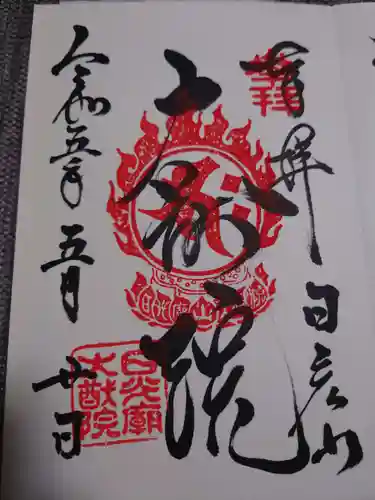 奉拝 日光山
大猷院
令和五年 五月 廿日
日光廟
大猷院